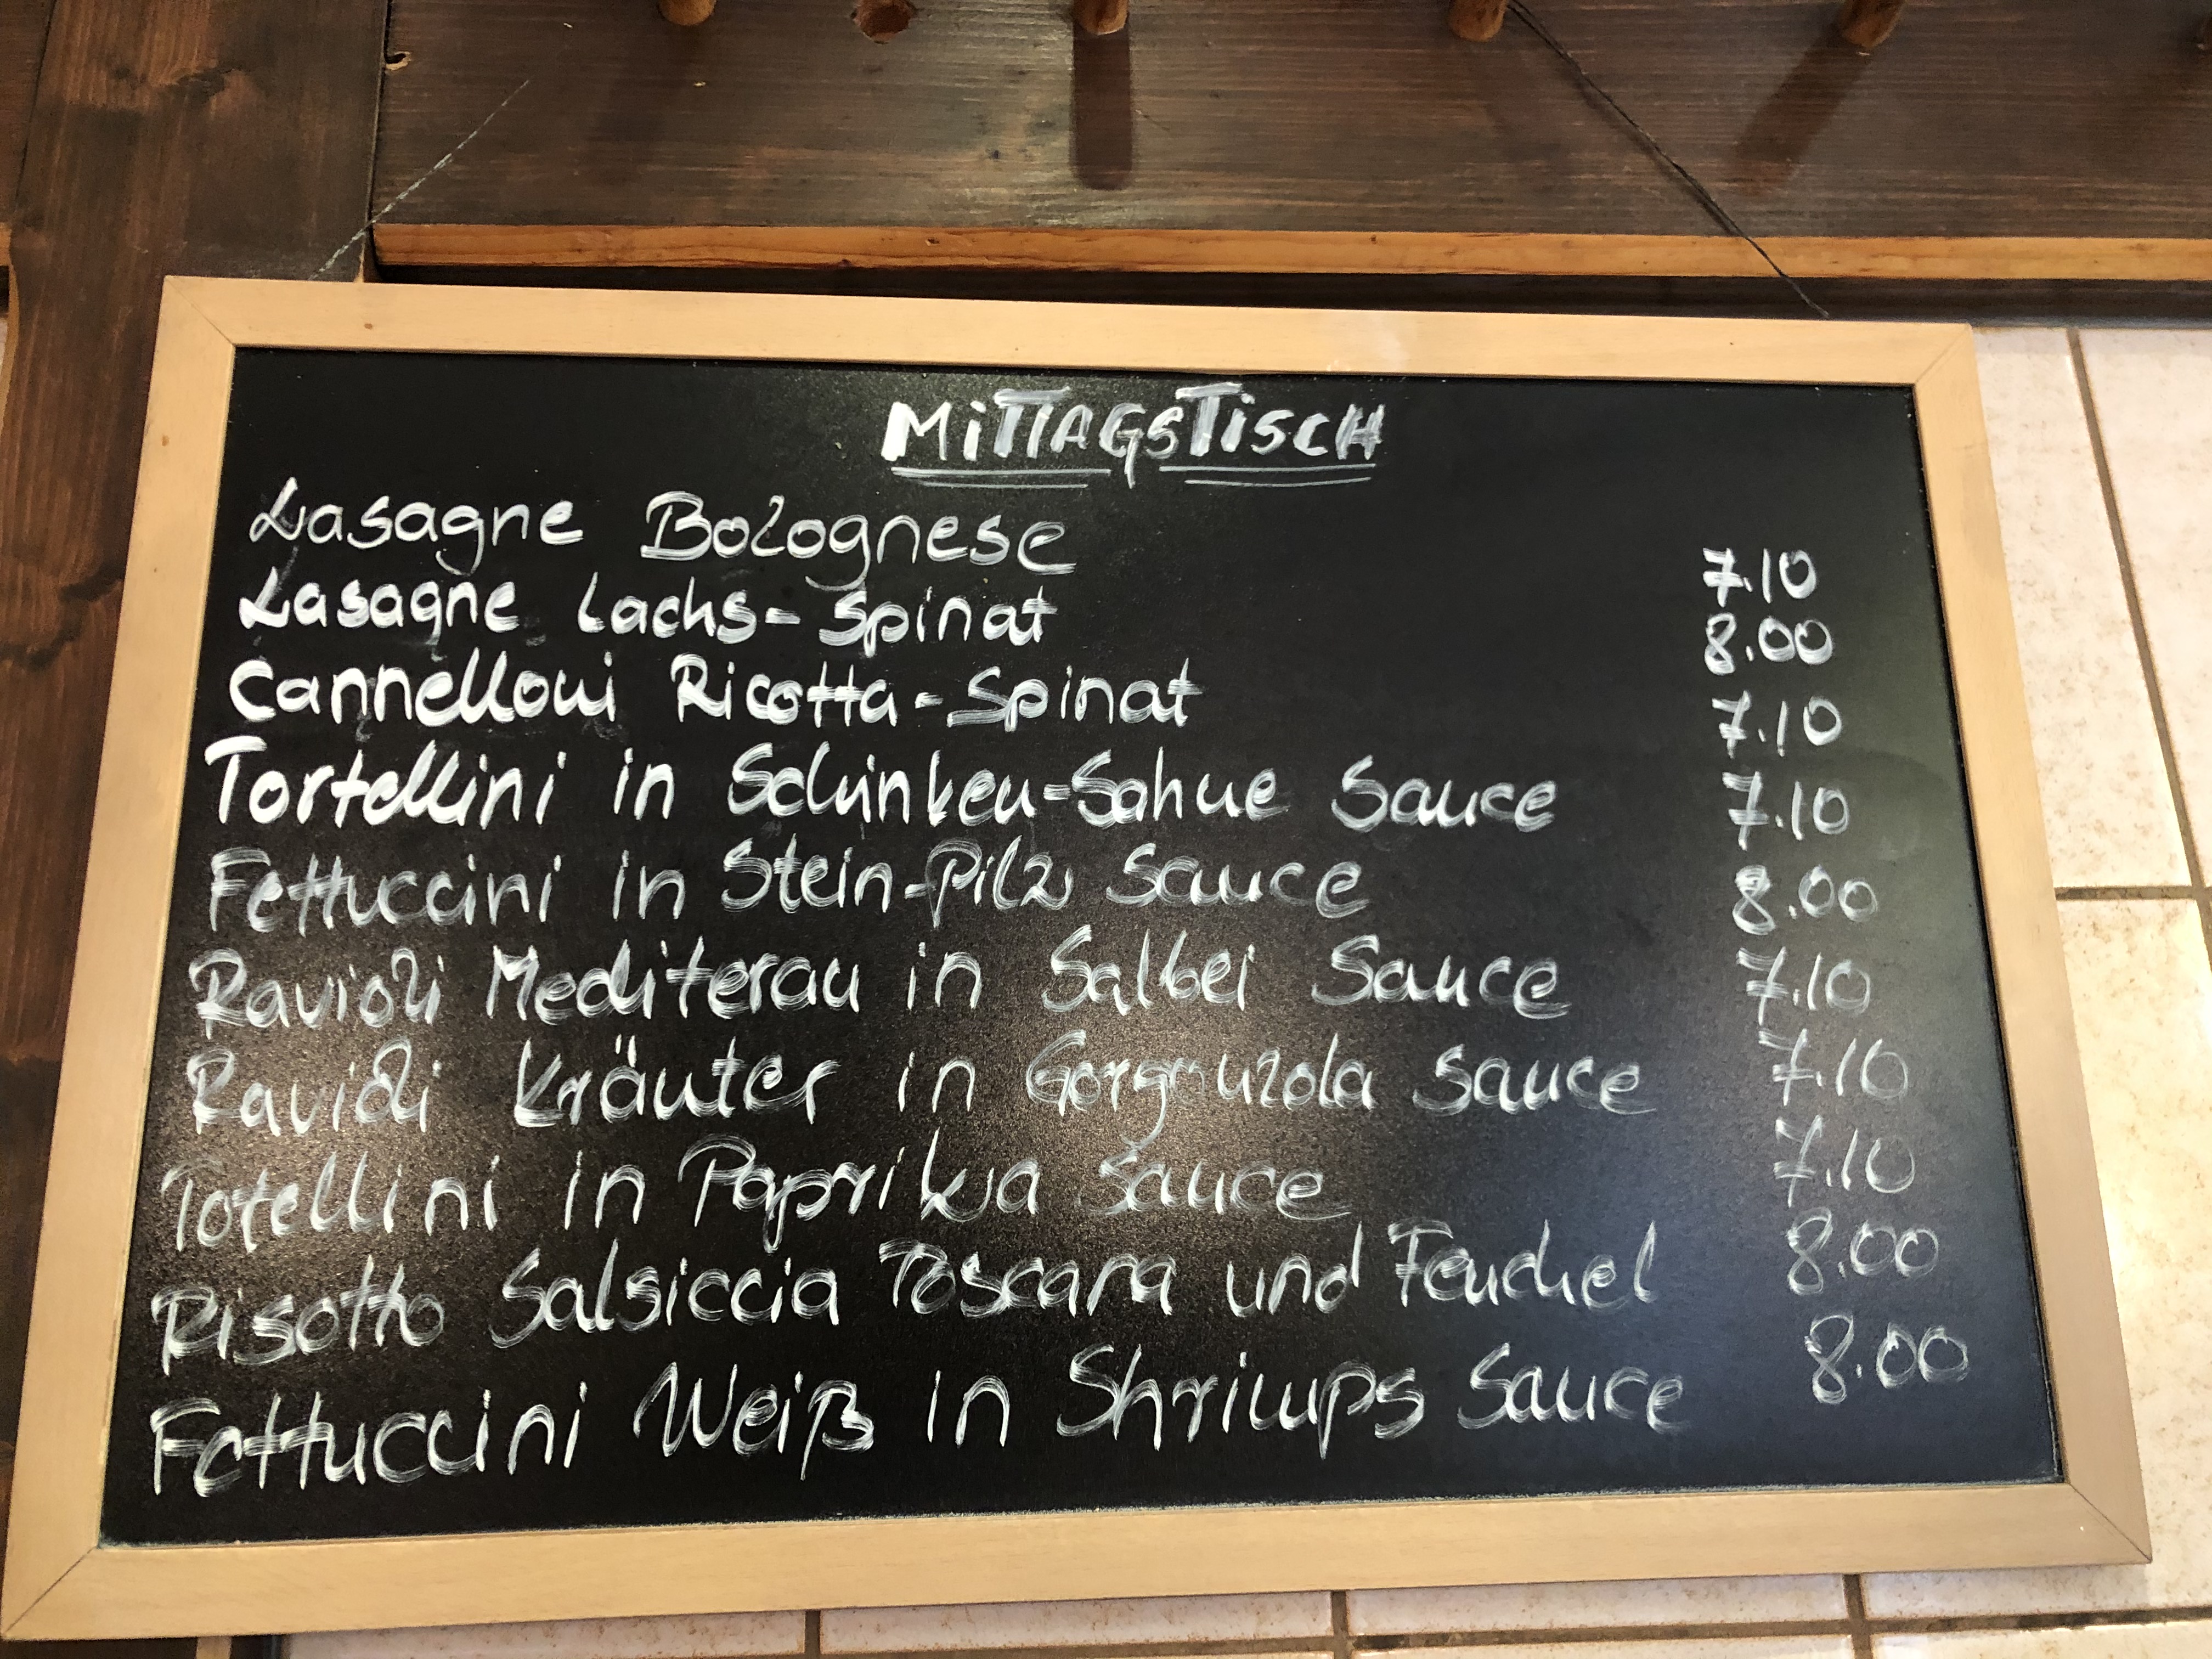 MiTTAGSTiSCH
Lasagne Bolognese 7.10
Lasagne Lachs-Spinat 8.00
Cannelloni Ricotta-Spinat 7.10
Tortellini in Schinken-Sahne Sauce 7.10
Fettuccini in Stein-Pilz Sauce 8.00
Ravioli Mediteran in Salbei Sauce 7.10
Ravioli Kräuter in Gorgonzola Sauce 7.10
Totellini in Paprika Sauce 7.10
Risotto Salsiccia Toscana und Fenchel 8.00
Fettuccini Weiß in Shrimps Sauce 8.00